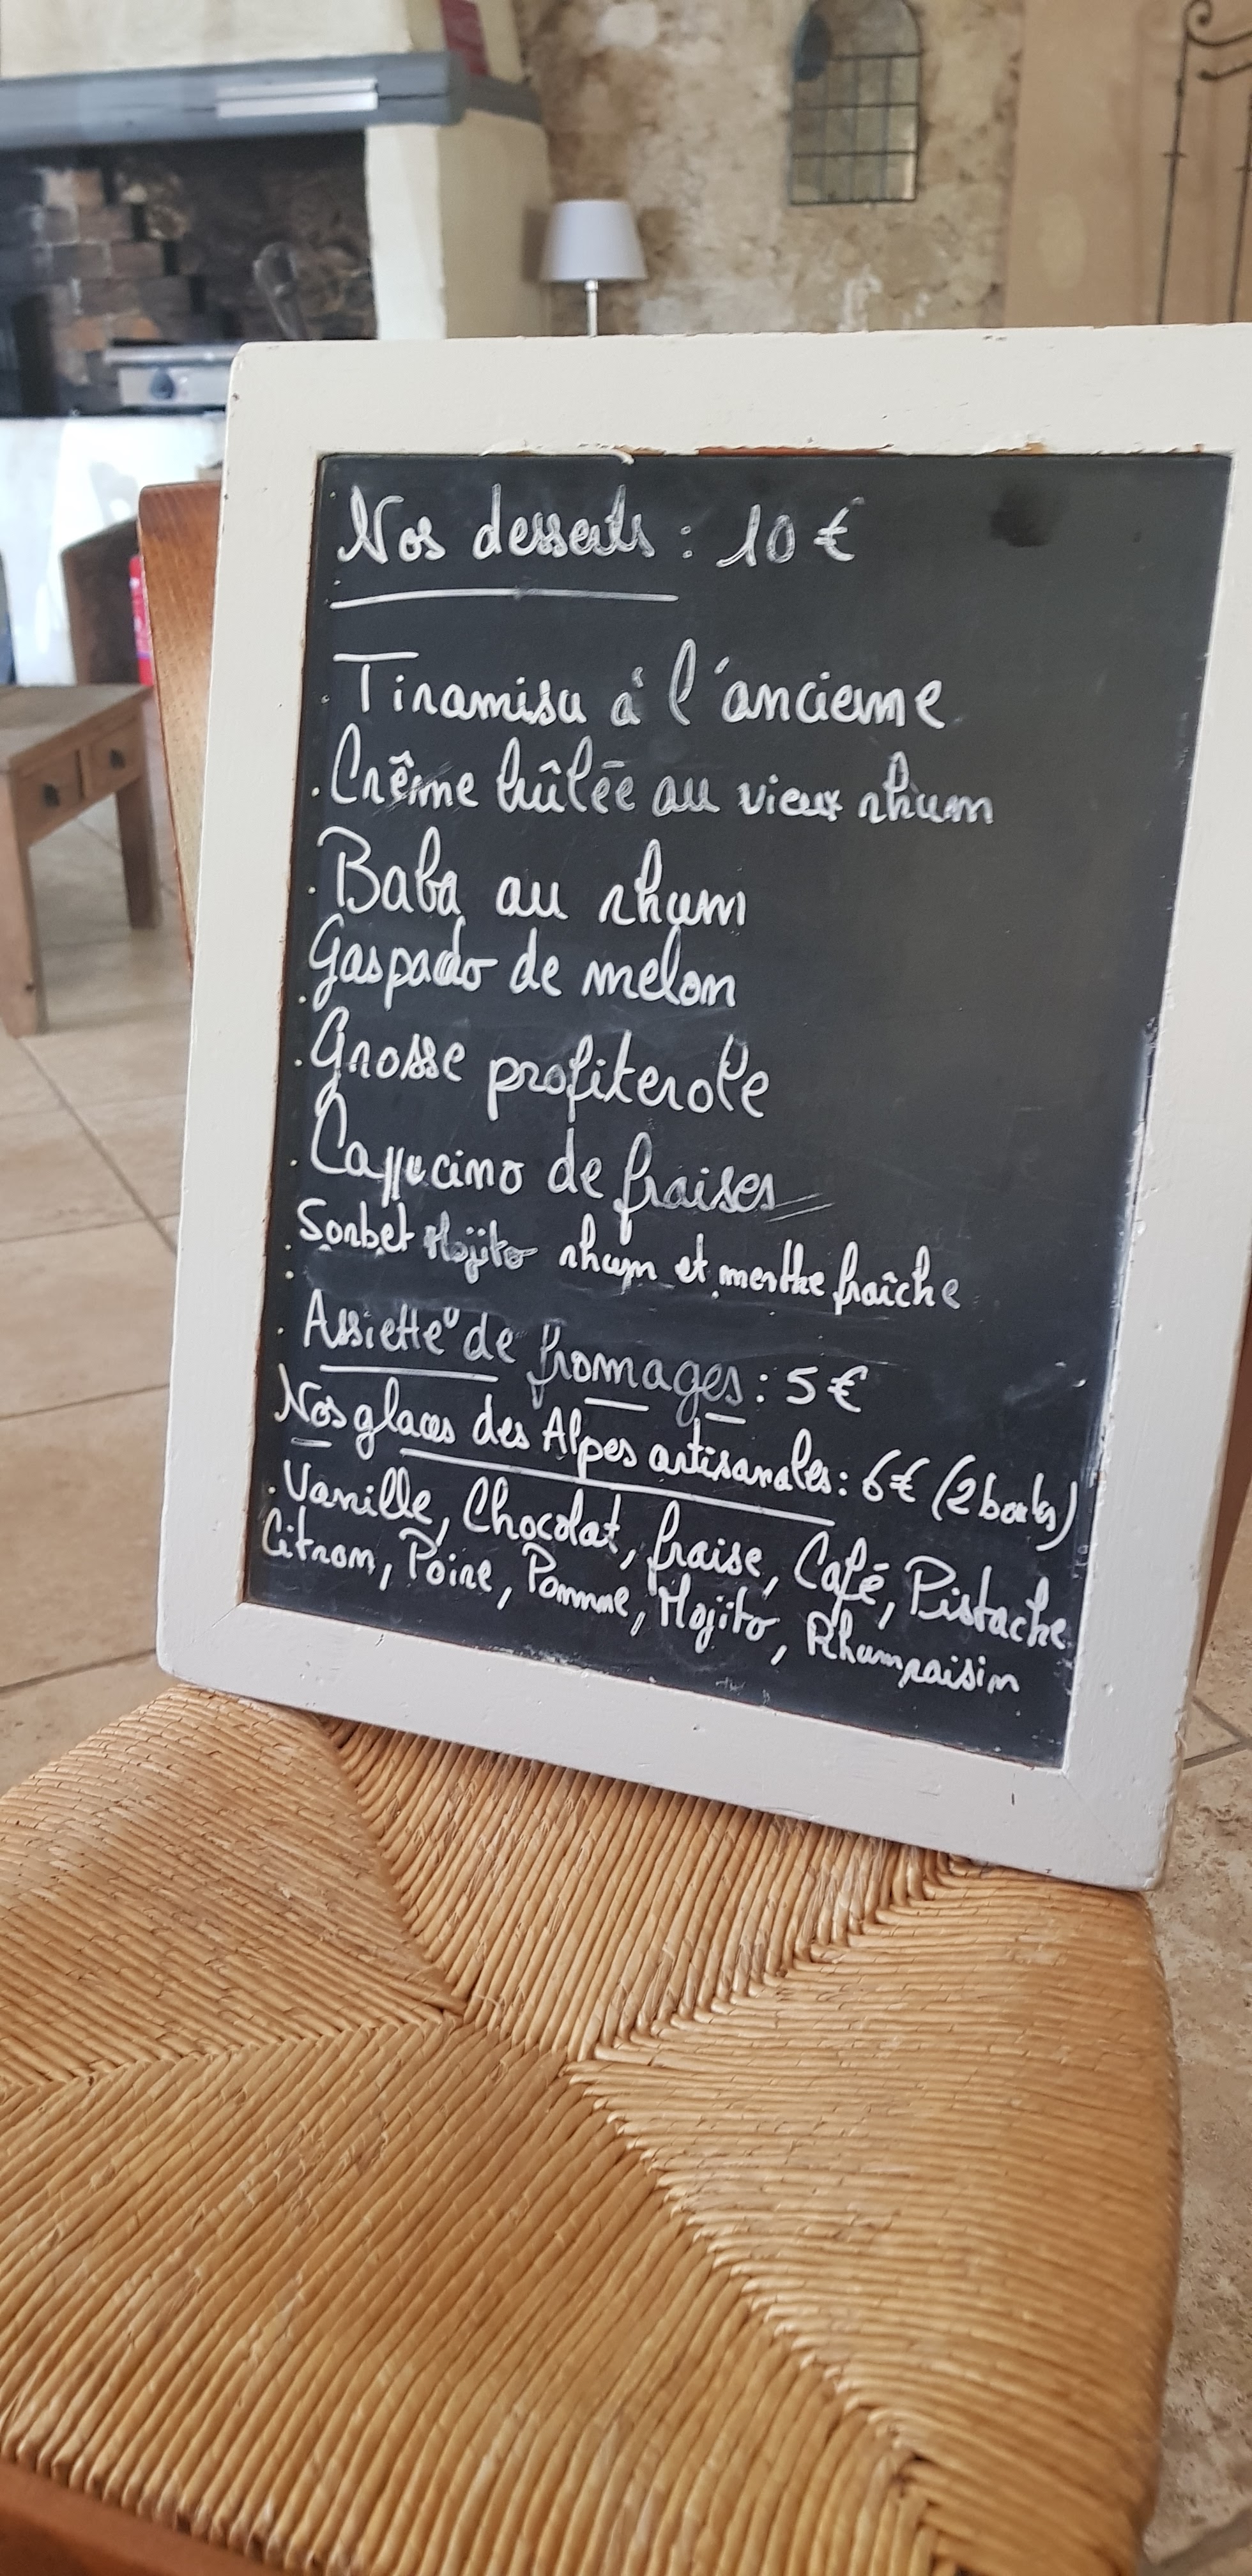 Nos desserts : 10 €
. Tiramisu à l'ancienne
. Crême brûlée au vieux rhum
. Baba au rhum
. Gaspacho de melon
. Grosse profiterole
. Cappucino de fraises
. Sorbet Mojito rhum et menthe fraîche
. Assiette de fromages : 5 €
Nos glaces des Alpes artisanales : 6 € (2 boules)
. Vanille, Chocolat, fraise, Café, Pistache
Citron, Poire, Pomme, Mojito, Rhum raisin